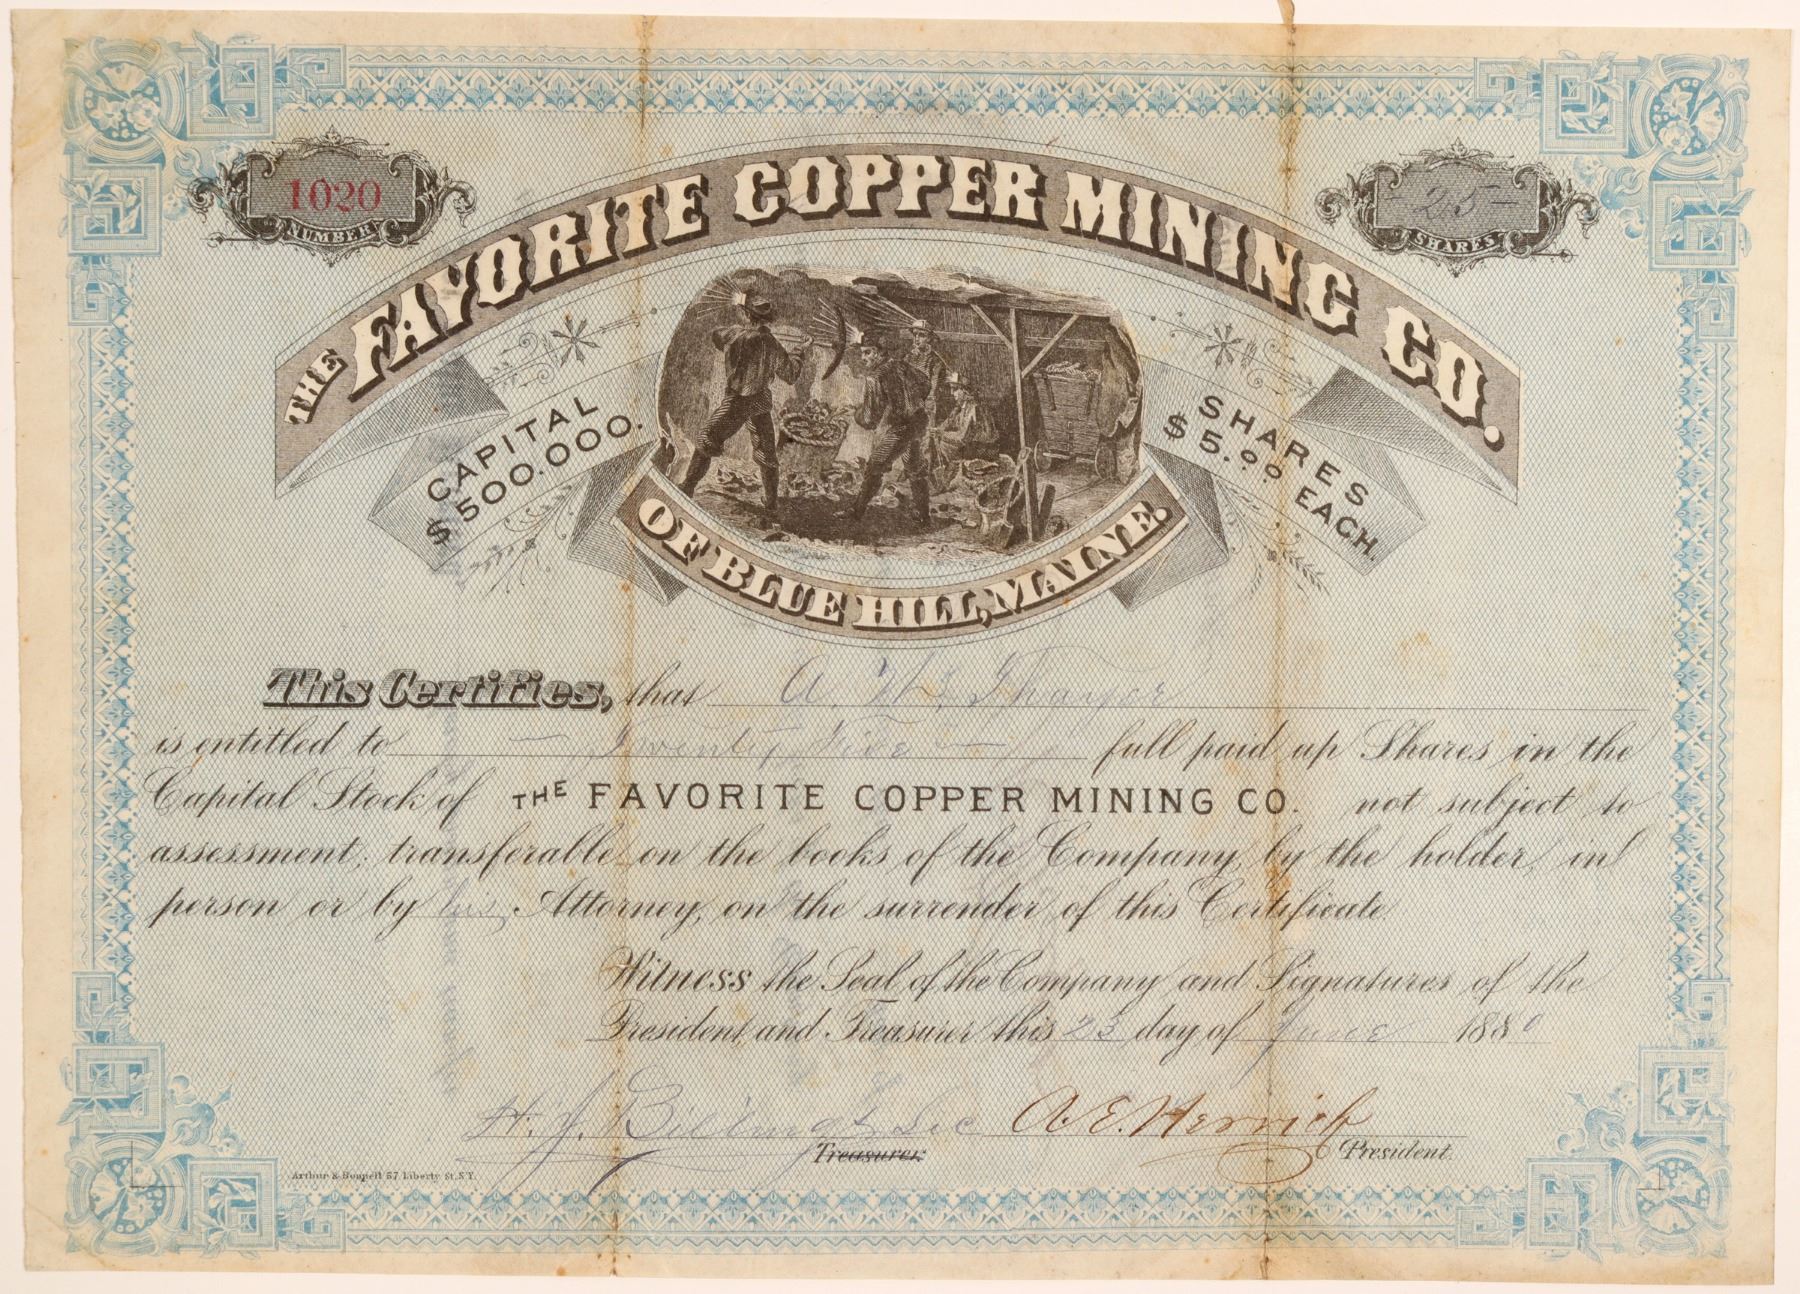 1020
NUMBER
25
SHARES
THE FAVORITE COPPER MINING CO.
CAPITAL
$500.000.
SHARES
$5.00 EACH.
OF BLUE HILL, MAINE.
This Certifies, that A. W. Thayer
is entitled to — Twenty Five — full paid up Shares in the
Capital Stock of THE FAVORITE COPPER MINING CO. not subject to
assessment; transferable on the books of the Company, by the holder, in
person or by his Attorney, on the surrender of this Certificate
Witness the Seal of the Company and Signatures of the
President and Treasurer this 23 day of June 1880
H. J. Billings Sec A. E. Herrick
Treasurer. President.
Arthur & Bonnell 57 Liberty St. N.Y.